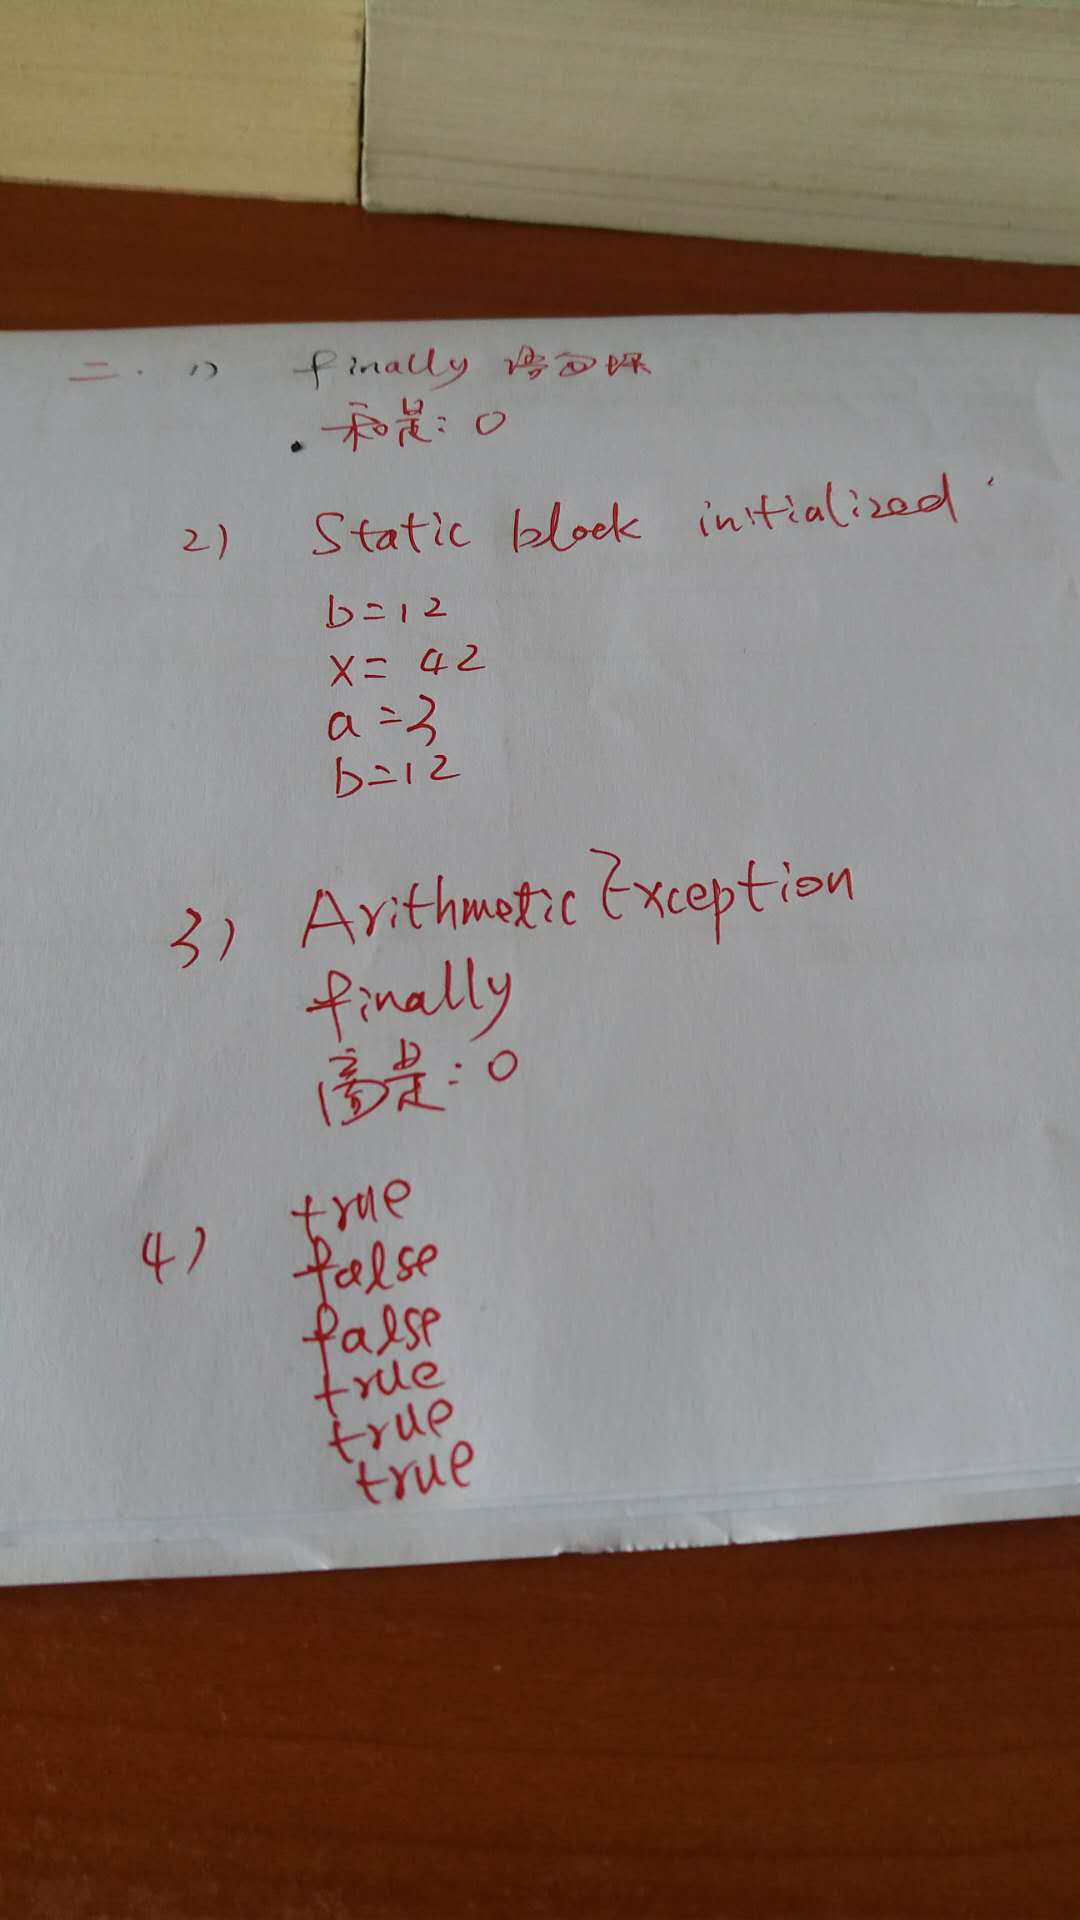 二. 1) finally 语句块
和是: 0
2) Static block initialized
b=12
x= 42
a=3
b=12
3) ArithmeticException
finally
商是: 0
4) true
false
false
true
true
true